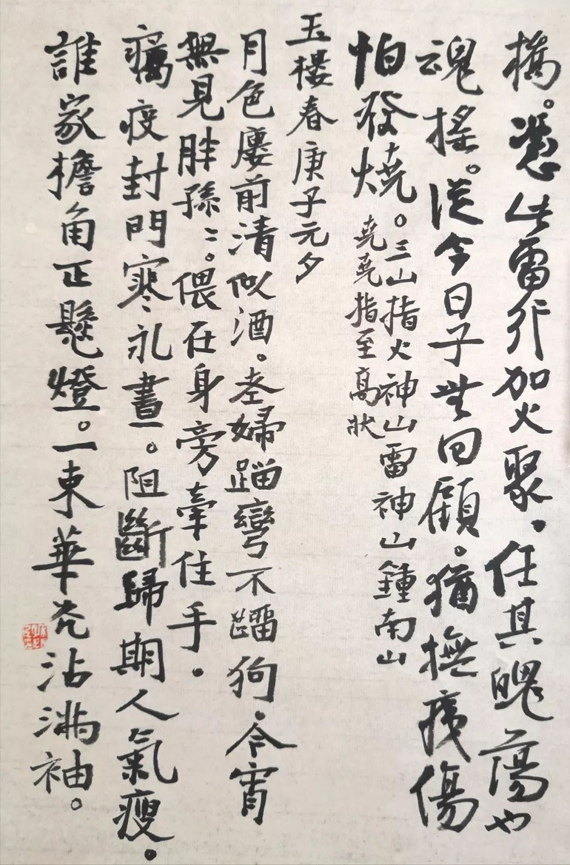 橋。憑此雷行加火聚，任其魄蕩也
魂搖。從今日子無回顧。猶撫痍傷
怕發燒。三山指火神山雷神山鍾南山
堯堯指至高狀
玉樓春庚子元夕
月色屢前清似酒。老婦蹓彎不蹓狗，今宵
無見胖孫：。偎在身旁牽住手，
癘疫封門寒礼晝。阻斷歸期人氣瘦。
誰家檐角正懸燈。一束華光沾滿袖。